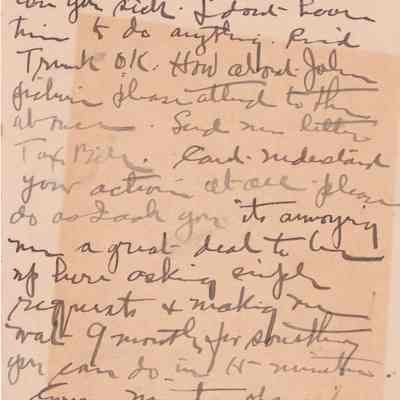 you sick. I don't have
time to do anything. Rec'd
Trunk OK. How about John
picture please attend to this
at once. Send me letter
Tax Bill. Can't understand
your action at all. please
do as I ask you its annoying
me a great deal to be
up here asking simple
requests & making me
wait 9 months for something
you can do in 15 minutes.